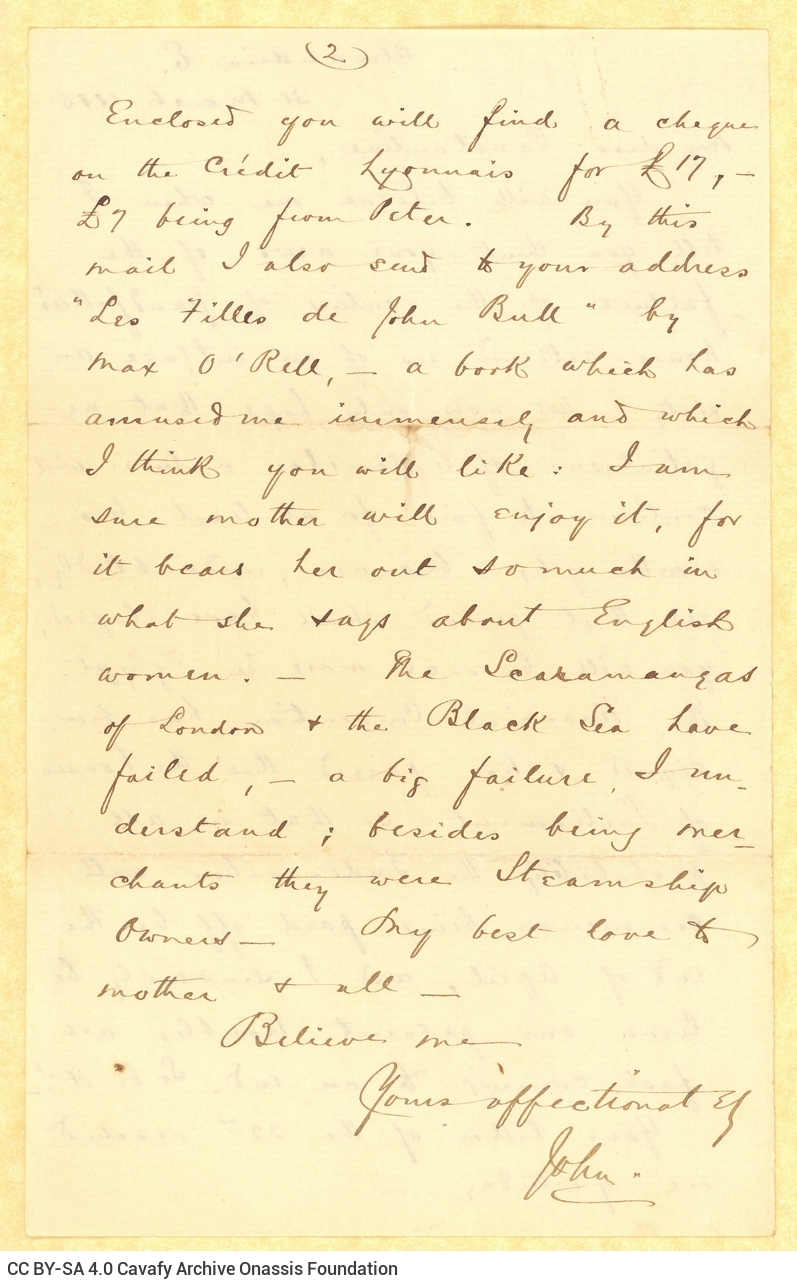 (2)
Enclosed you will find a cheque
on the Crédit Lyonnais for £17, —
£7 being from Peter. By this
mail I also send to your address
"Les Filles de John Bull" by
Max O'Rell, — a book which has
amused me immensely and which
I think you will like: I am
sure mother will enjoy it, for
it bears her out so much in
what she says about English
women. — The Scaramangas
of London & the Black Sea have
failed, — a big failure, I un-
derstand; besides being mer-
chants they were Steamship
Owners — My best love to
mother & all —
Believe me
Yours affectionately
John.
CC BY-SA 4.0 Cavafy Archive Onassis Foundation